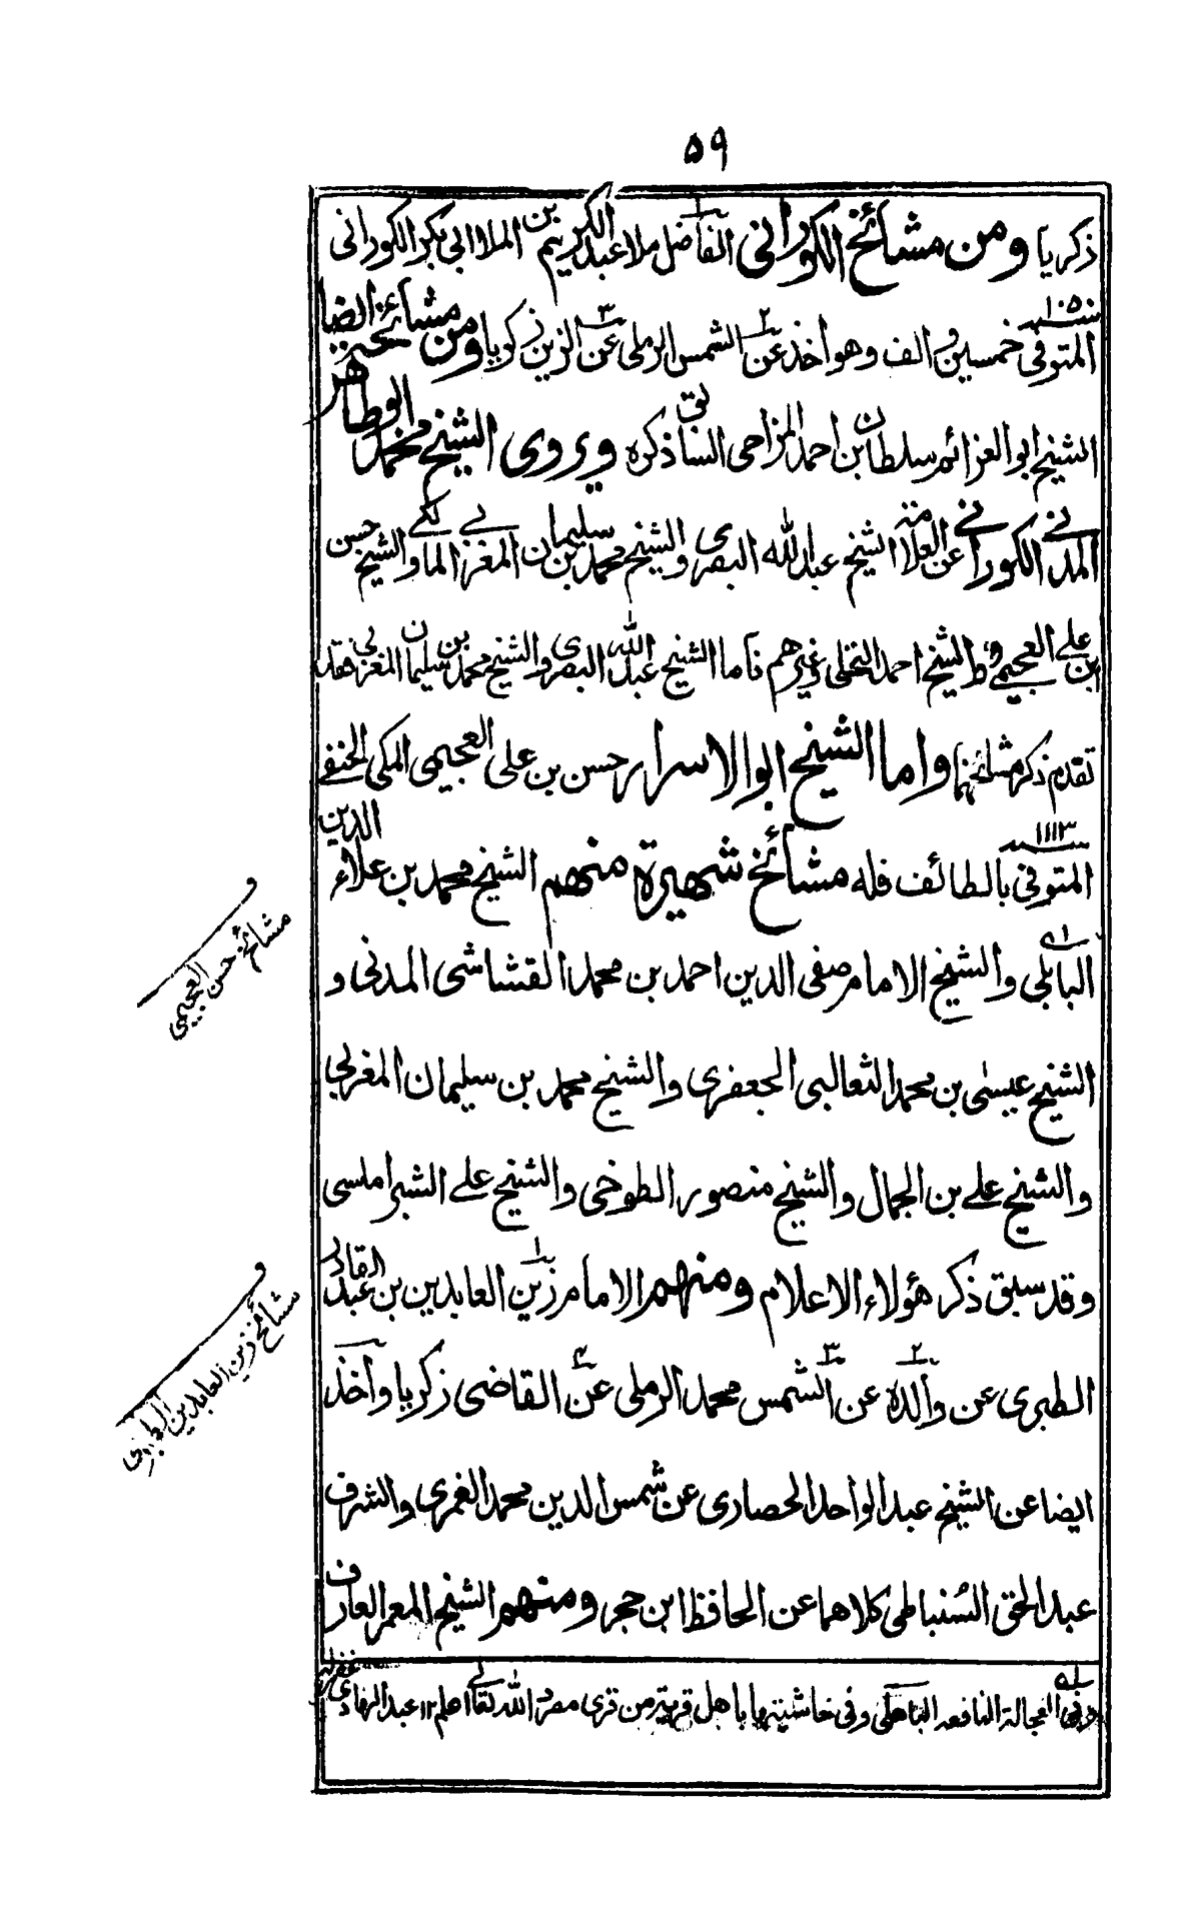 ٥٩
ذكريا ومن مشائخ الكوراني الفاضل ملا عبد الكريم بن الملا ابى بكر الكورانى
المتوفى سنة ١٠٥٠ خمسين والف وهو اخذ عن الشمس الرملى عن الزين زكريا ومن مشائخه ايضا
الشيخ ابو العزائم سلطان بن احمد المزاحى السابق ذكره ويروى الشيخ محمد ابو طاهر
المدنى الكورانى عن العلامة الشيخ عبد الله البصرى والشيخ محمد بن سليمان المغربى المالكى والشيخ حسن
بن على العجيمى والشيخ احمد النخلى وغيرهم فاما الشيخ عبد الله البصرى والشيخ محمد بن سليمان المغربى فقد
تقدم ذكر مشائخهما واما الشيخ ابو الاسرار حسن بن على العجيمى المكى الحنفى
المتوفى سنة ١١١٣ بالطائف فله مشائخ شهيرة منهم الشيخ محمد بن علاء الدين
البابلى والشيخ الامام صفى الدين احمد بن محمد القشاشى المدنى و
الشيخ عيسى بن محمد الثعالبى الجعفرى والشيخ محمد بن سليمان المغربى
والشيخ على بن الجمال والشيخ منصور الطوخى والشيخ على الشبراملسى
وقد سبق ذكر هؤلاء الاعلام ومنهم الامام زين العابدين بن عبد القادر
الطبرى عن والده عن الشمس محمد الرملى عن القاضى زكريا واخذ
ايضا عن الشيخ عبد الواحد الحصارى عن شمس الدين محمد الغمرى والشرف
عبد الحق السنباطى كلاهما عن الحافظ ابن حجر ومنهم الشيخ المعمر العارف
وفى العجالة النافعه الباهلى وفى حاشيتها باهل قرية من قرى مصر الله تعالى اعلم ١٢ عبد الهادى غفرله
مشائخ حسن العجيمى
مشائخ زين العابدين الطبرى